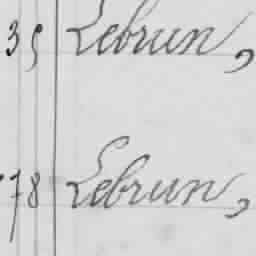 35 Lebrun,
78 Lebrun,